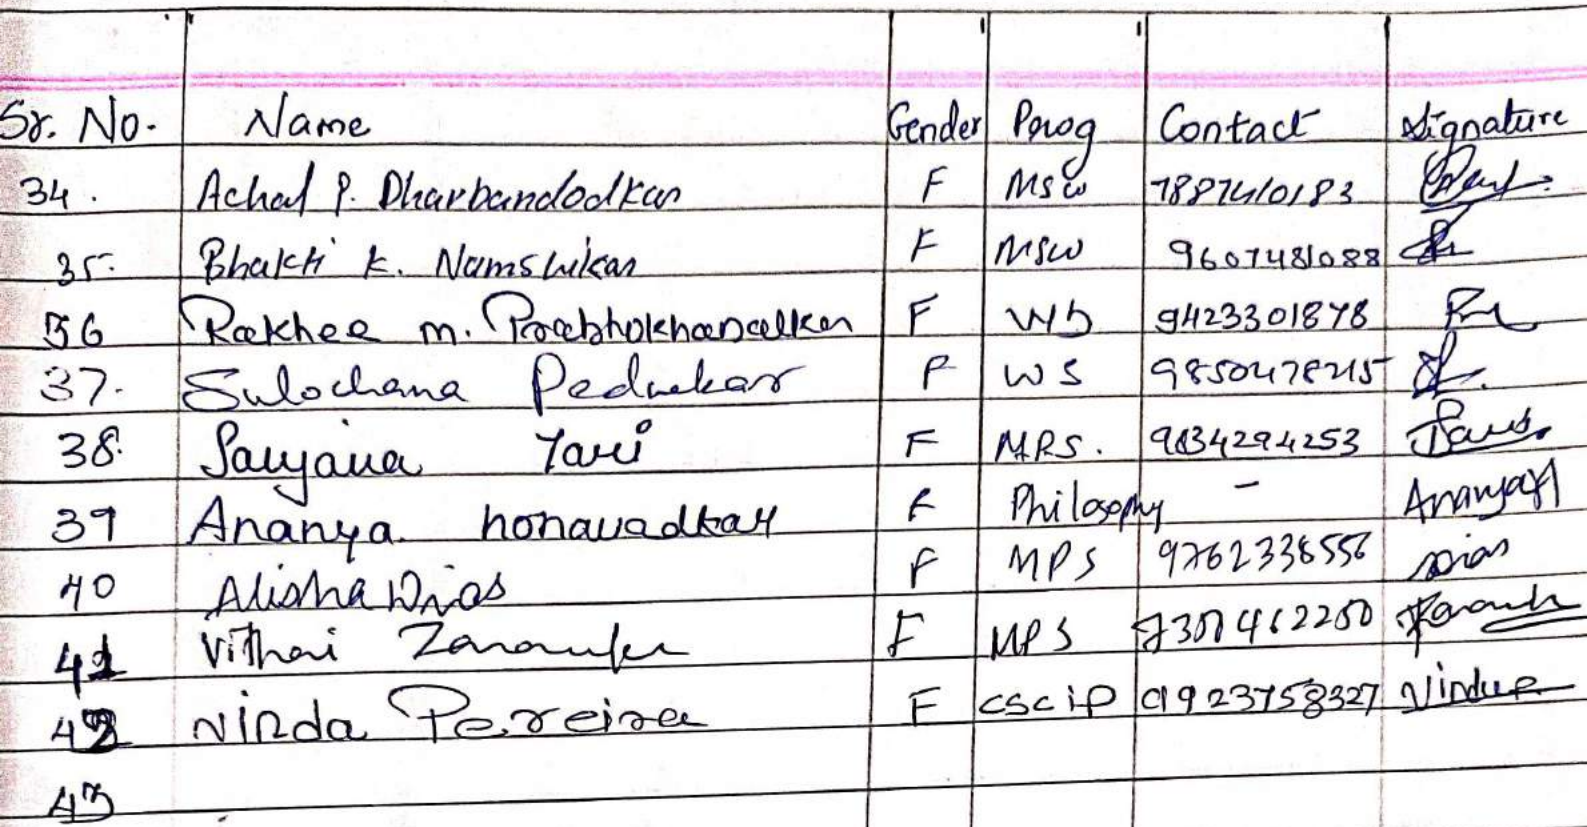 Sr. No. Name Gender Prog Contact Signature
34. Achal P. Dharbandodkar F MSW 7887410183
35. Bhakti K. Namshikar F MSW 9607481088
36 Rakhee M. Prabhokhanolkar F WS 9423301878
37. Sulochana Pednekar F WS 9850478215
38. Sanjana Tari F MRS. 9834294253
39 Ananya honavadkar F Philosophy - Ananya
40 Alisha Dias F MPS 9762338556 Dias
41 Vithai F MPS
42 Vinda Pereira F CSCIP 9923758327
43